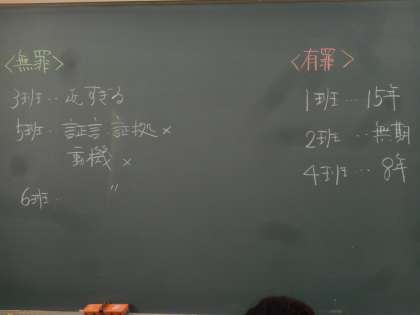 <無罪>
3班‥正すぎる
5班‥証言・証拠×
動機×
6班‥ 〃
<有罪>
1班…15年
2班…無期
4班…8年